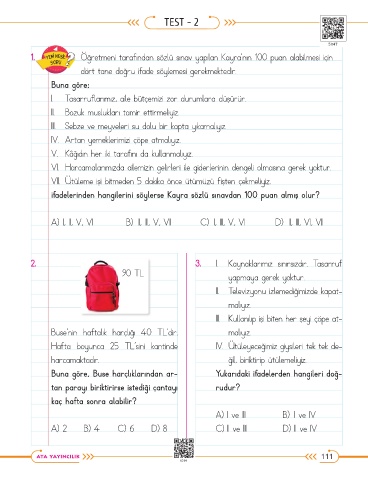 TEST - 2
1. YENİ NESİL SORU Öğretmeni tarafından sözlü sınav yapılan Kayra'nın 100 puan alabilmesi için
dört tane doğru ifade söylemesi gerekmektedir.
Buna göre;
I. Tasarruflarımız, aile bütçemizi zor durumlara düşürür.
II. Bozuk muslukları tamir ettirmeliyiz.
III. Sebze ve meyveleri su dolu bir kapta yıkamalıyız.
IV. Artan yemeklerimizi çöpe atmalıyız.
V. Kâğıdın her iki tarafını da kullanmalıyız.
VI. Harcamalarımızda ailemizin gelirleri ile giderlerinin dengeli olmasına gerek yoktur.
VII. Ütüleme işi bitmeden 5 dakika önce ütümüzü fişten çekmeliyiz.
ifadelerinden hangilerini söylerse Kayra sözlü sınavdan 100 puan almış olur?
A) I, II, V, VI B) II, III, V, VII C) I, III, V, VI D) II, III, VI, VII
2.
90 TL
Buse'nin haftalık harçlığı 40 TL'dir.
Hafta boyunca 25 TL'sini kantinde
harcamaktadır.
Buna göre, Buse harçlıklarından ar-
tan parayı biriktirirse istediği çantayı
kaç hafta sonra alabilir?
A) 2 B) 4 C) 6 D) 8
3. I. Kaynaklarımız sınırsızdır. Tasarruf
yapmaya gerek yoktur.
II. Televizyonu izlemediğimizde kapat-
malıyız.
III. Kullanılıp işi biten her şeyi çöpe at-
malıyız.
IV. Ütüleyeceğimiz giysileri tek tek de-
ğil, biriktirip ütülemeliyiz.
Yukarıdaki ifadelerden hangileri doğ-
rudur?
A) I ve III B) I ve IV
C) II ve III D) II ve IV
ATA YAYINCILIK
111